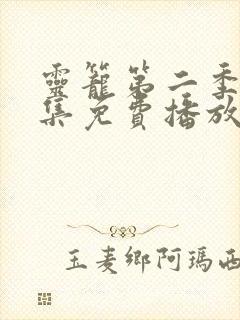 靈籠第二季
集免費播放
玉麦鄉阿瑪西